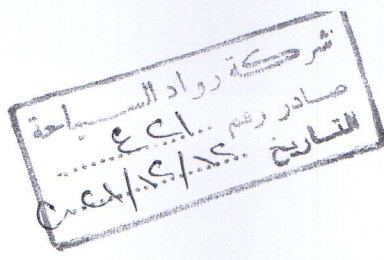 شركة رواد السياحة
صادر رقم ٤٢١
التاريخ ٢٠٢١/١٢/١٢